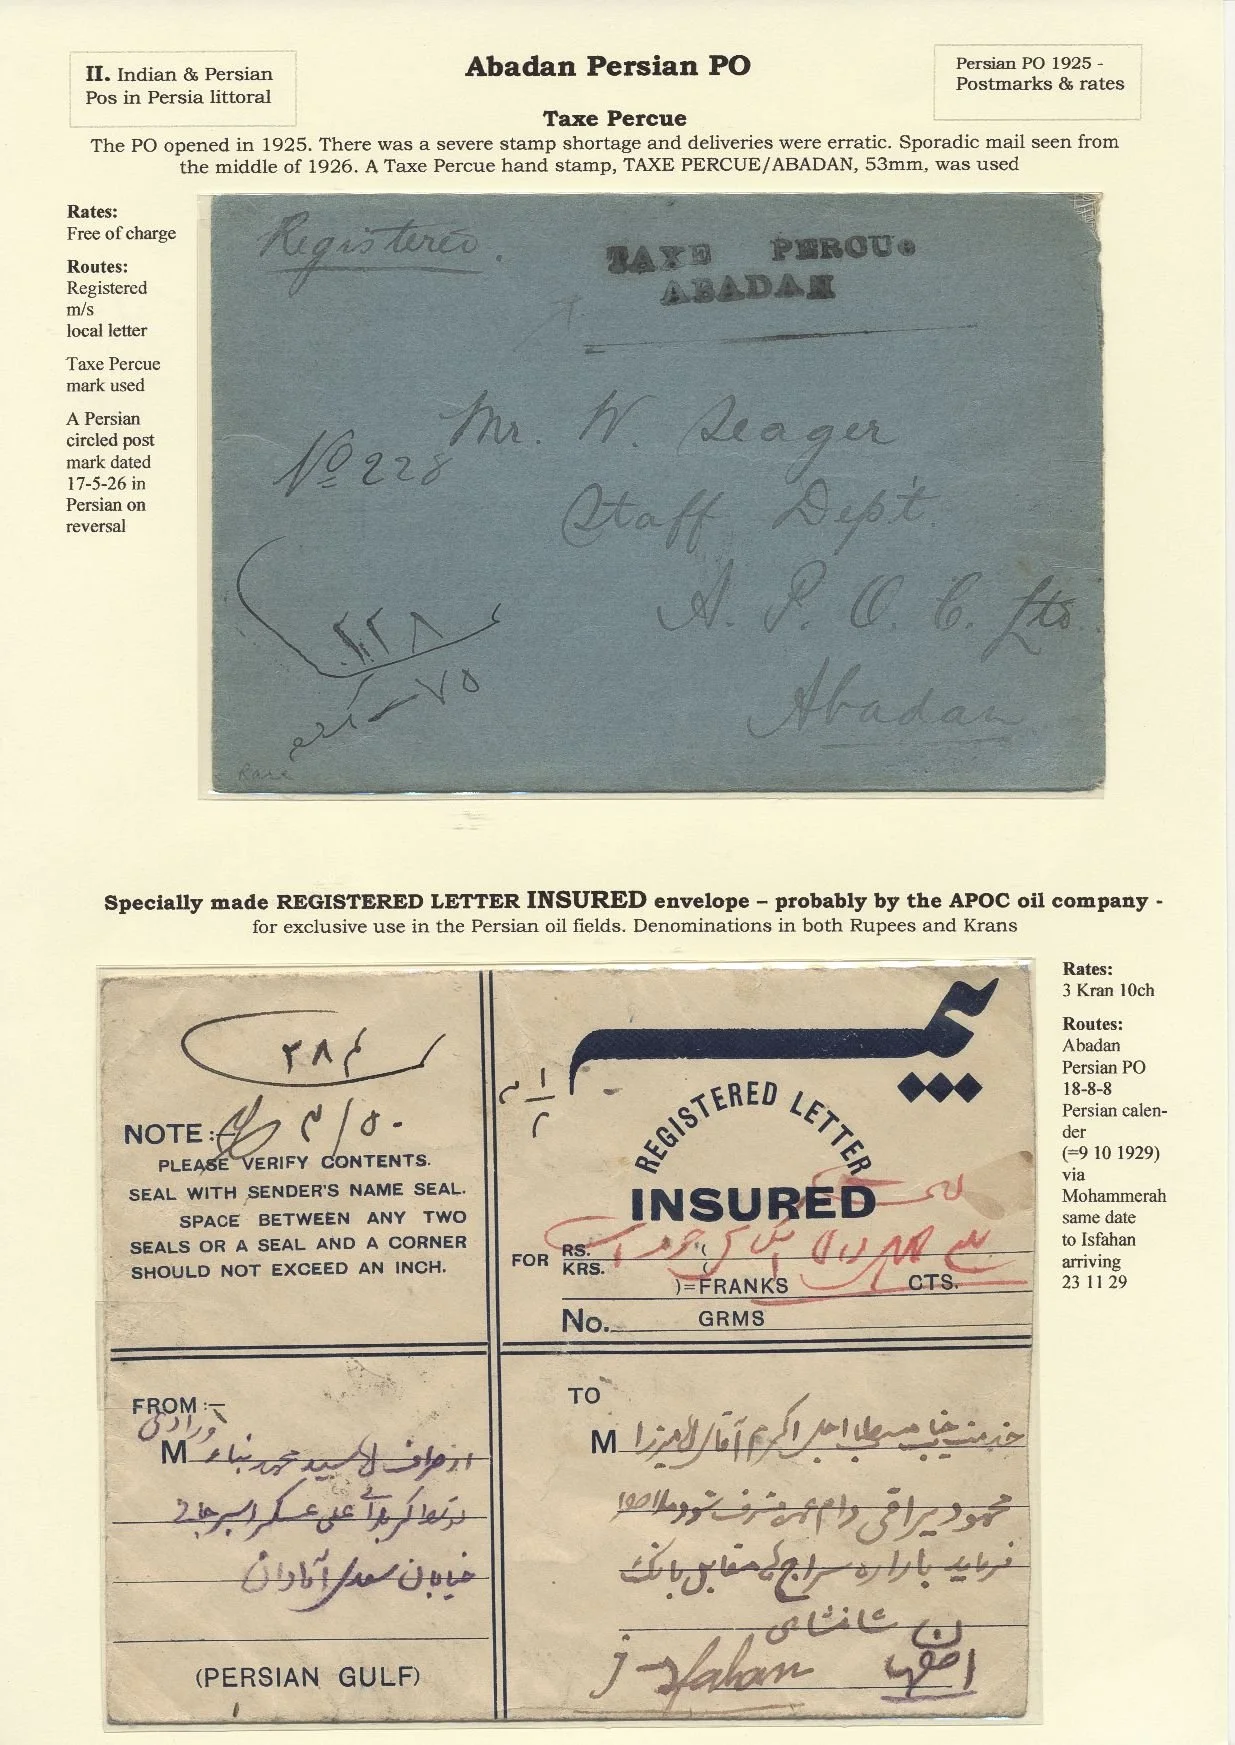 II. Indian & Persian
Pos in Persia littoral
Abadan Persian PO
Persian PO 1925 -
Postmarks & rates
Taxe Percue
The PO opened in 1925. There was a severe stamp shortage and deliveries were erratic. Sporadic mail seen from
the middle of 1926. A Taxe Percue hand stamp, TAXE PERCUE/ABADAN, 53mm, was used
Rates:
Free of charge
Routes:
Registered
m/s
local letter
Taxe Percue
mark used
A Persian
circled post
mark dated
17-5-26 in
Persian on
reversal
Registered.
TAXE PERCUE
ABADAN
Mr. W. Seager
No 228
Staff Dept.
A. P. O. C. Ltd.
Abadan
۲۲۸
Rare
Specially made REGISTERED LETTER INSURED envelope – probably by the APOC oil company -
for exclusive use in the Persian oil fields. Denominations in both Rupees and Krans
Rates:
3 Kran 10ch
Routes:
Abadan
Persian PO
18-8-8
Persian calen-
der
(=9 10 1929)
via
Mohammerah
same date
to Isfahan
arriving
23 11 29
NOTE:-
PLEASE VERIFY CONTENTS.
SEAL WITH SENDER'S NAME SEAL.
SPACE BETWEEN ANY TWO
SEALS OR A SEAL AND A CORNER
SHOULD NOT EXCEED AN INCH.
REGISTERED LETTER
INSURED
FOR RS.
KRS.
)=FRANKS CTS.
No. GRMS
FROM:-
M از طرف سید محمد بناء
خیابان سعدی آبادان
(PERSIAN GULF)
TO
M
محمود
مقابل بانک
شاهنشاهی
Isfahan
اصفهان